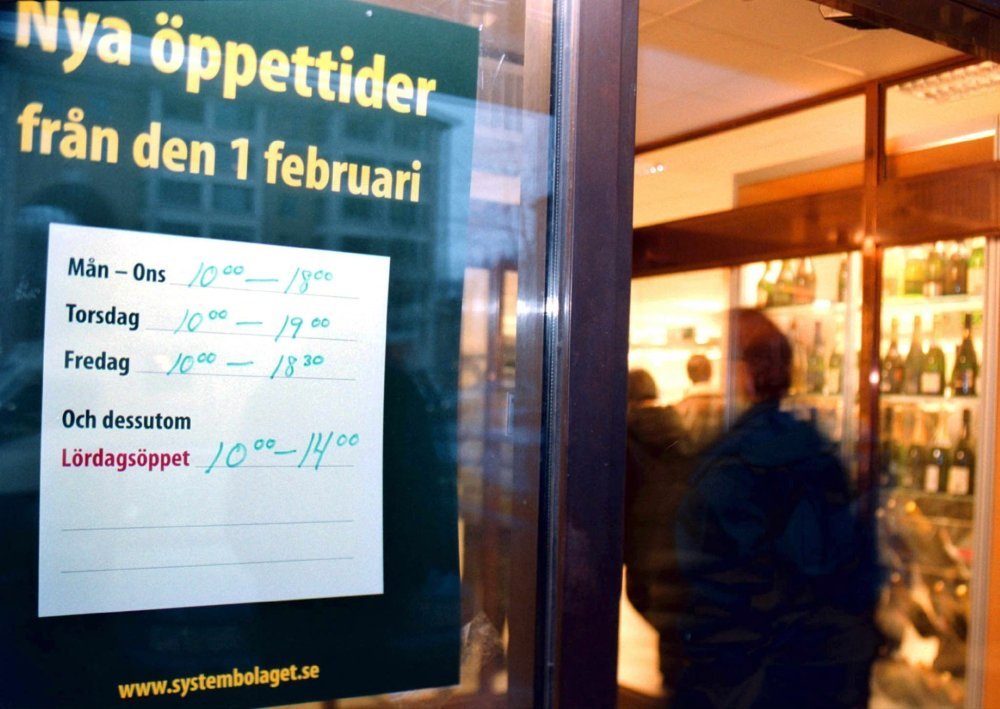 Nya öppettider
från den 1 februari
Mån – Ons 10⁰⁰ – 18⁰⁰
Torsdag 10⁰⁰ – 19⁰⁰
Fredag 10⁰⁰ – 18³⁰
Och dessutom
Lördagsöppet 10⁰⁰ – 14⁰⁰
www.systembolaget.se